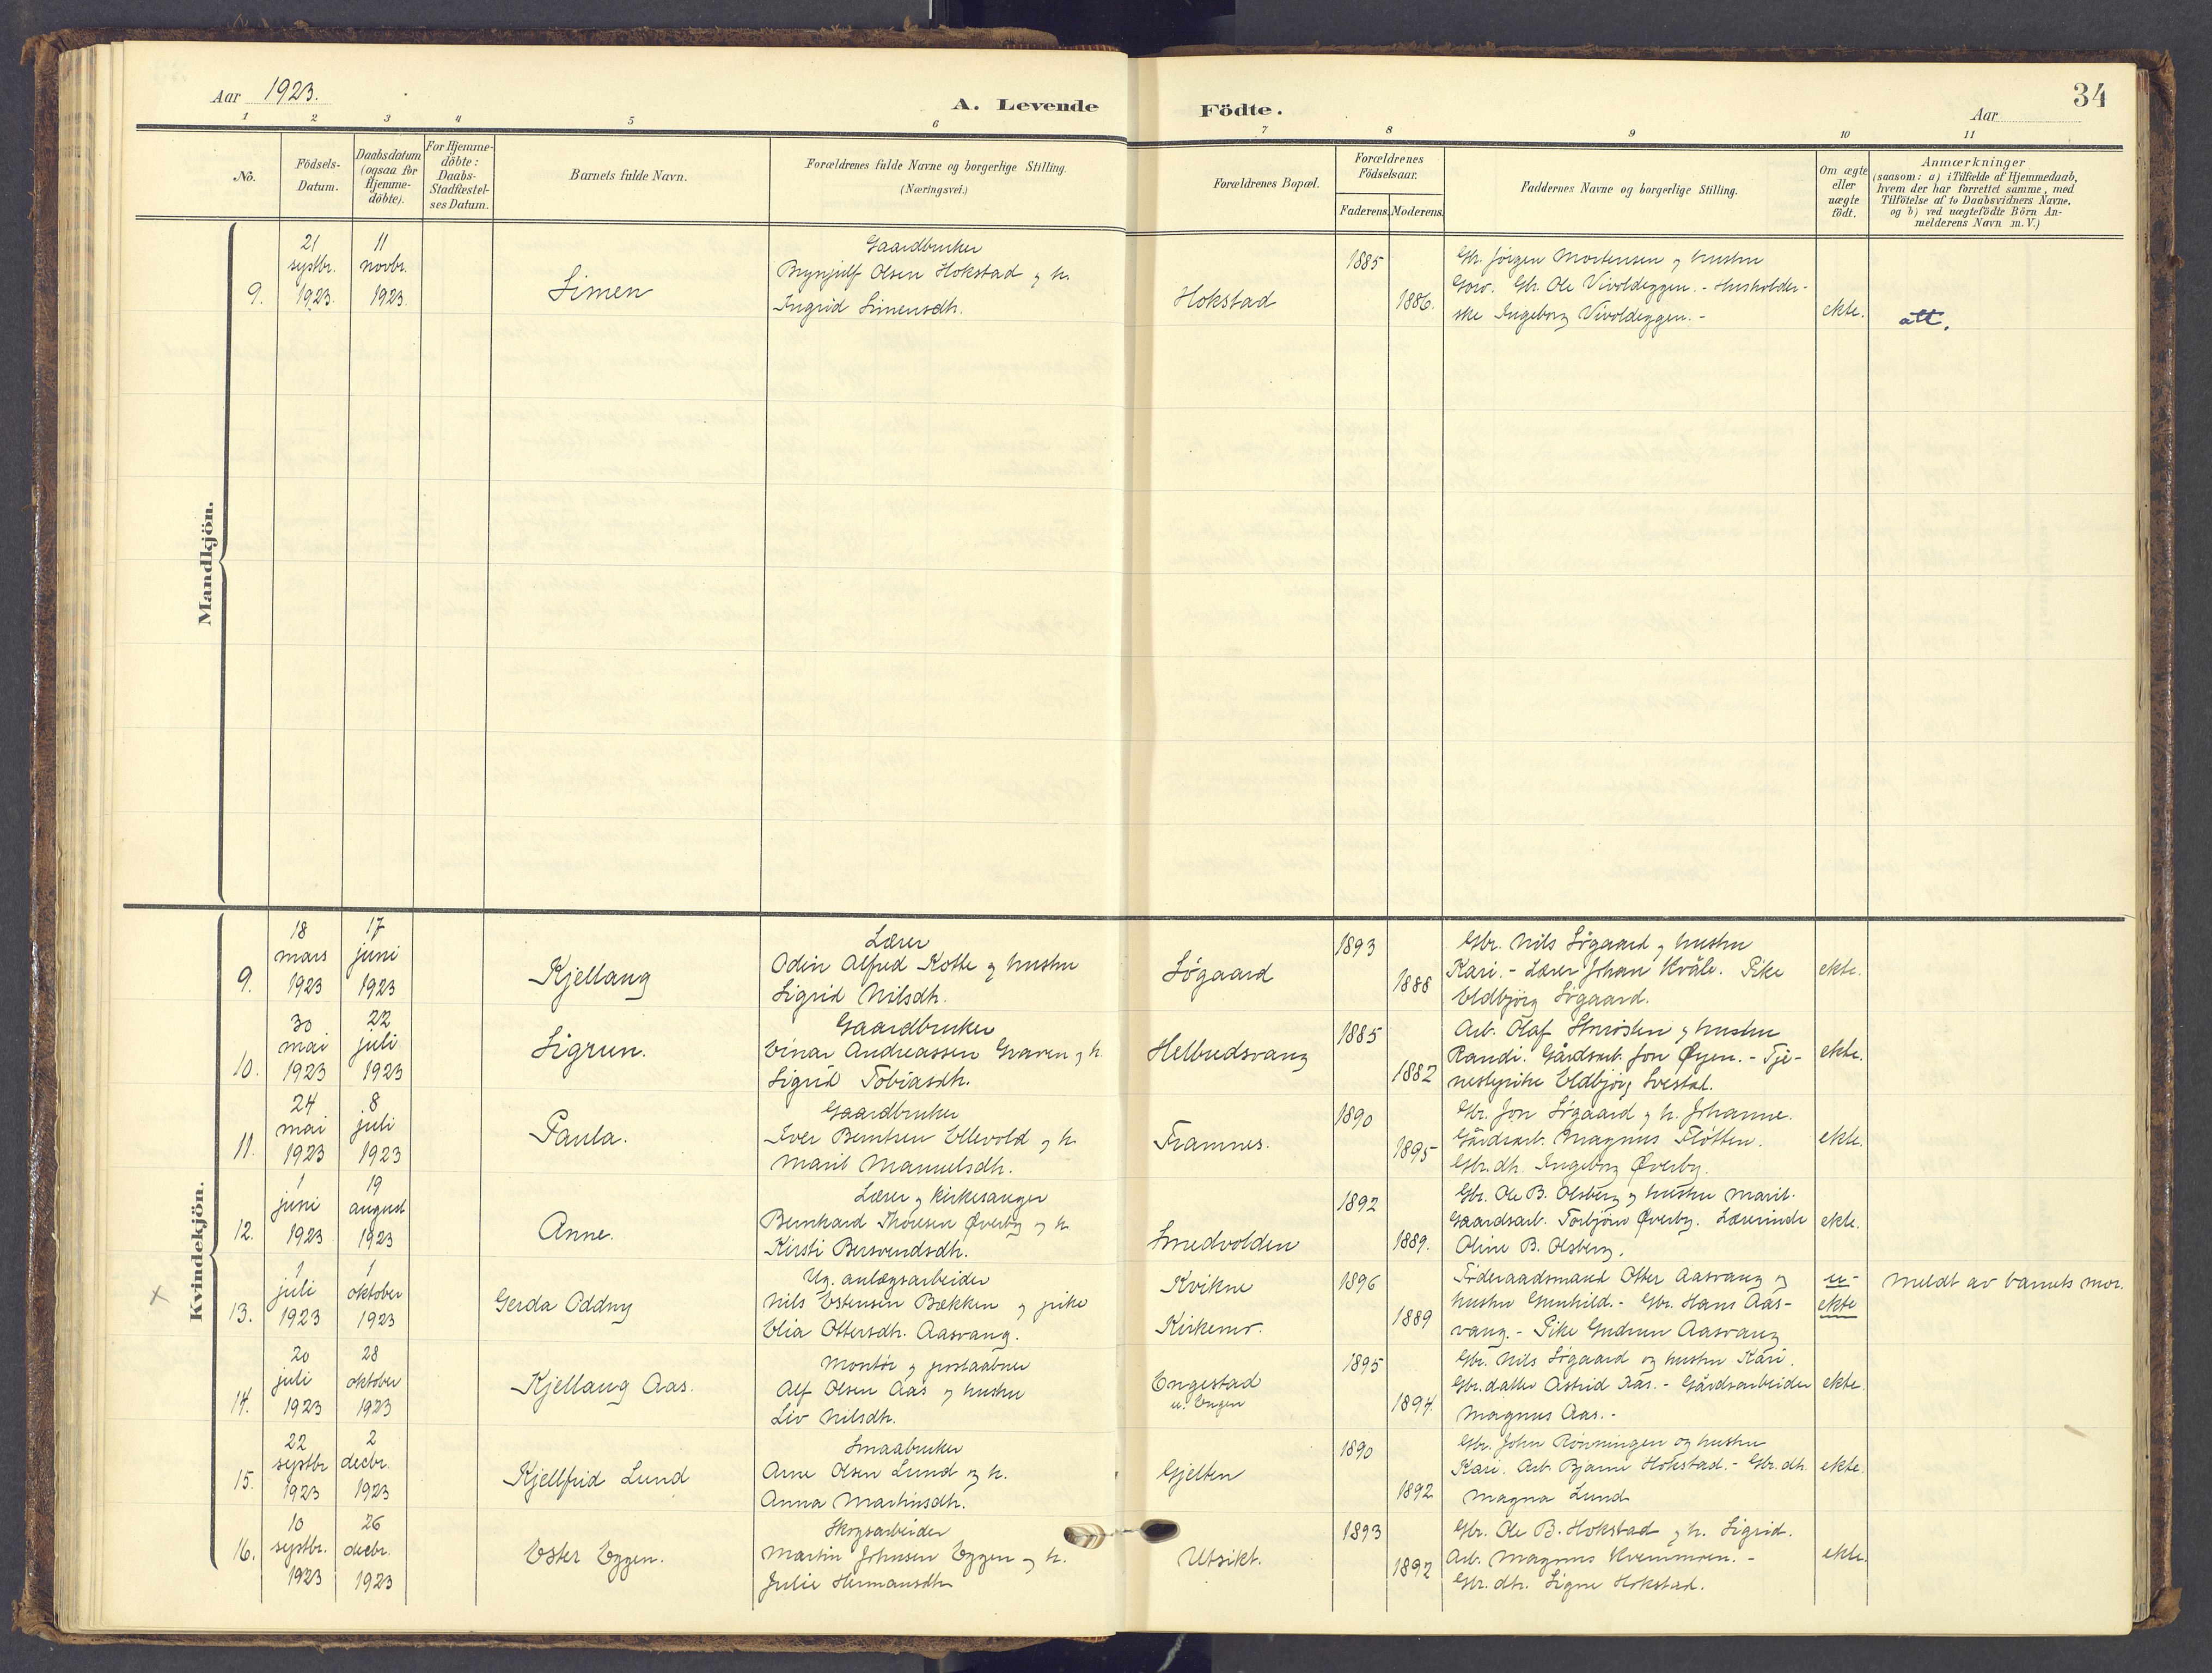 Aar 1923.
A. Levende Födte.
Aar
34
1 2 3 4 5 6 7 8 9 10 11
No.
Födsels-
Datum.
Daabsdatum
(ogsaa for
Hjemme-
döbte).
For Hjemme-
döbte:
Daabs-
Stadfæstel-
ses Datum.
Barnets fulde Navn.
Forældrenes fulde Navne og borgerlige Stilling.
(Næringsvei.)
Forældrenes Bopæl.
Forældrenes
Födselsaar.
Faderens. Moderens.
Faddernes Navne og borgerlige Stilling.
Om ægte
eller
uægte
födt.
Anmærkninger
(saasom: a) i Tilfælde af Hjemmedaab,
hvem der har forrettet samme, med
Tilföielse af to Daabsvidners Navne,
og b) ved uægtefödte Börn An-
melderens Navn m. V.)
Mandkjön.
9.
21
septbr.
1923.
11
novbr.
1923.
Simen
Gaardbruker
Brynjulf Olsen Hokstad og h.
Ingrid Simensdh.
Hokstad
1885
1886.
Gbr. Jørgen Mortensen og hustru
Gbr. Ole Vivoldeggen. - Husholder-
ske Ingeborg Vivoldeggen. -
ekte.
att.
Kvindekjön.
9.
18
mars
1923
17
juni
1923
Kjellaug
Lærer
Odin Alfred Kotte og hustru
Sigrid Nilsdh.
Søgaard
1893
1888
Gbr. Nils Søgaard og hustru
Kari. - Lærer Johan Kvåle. Pike
Eldbjørg Søgaard.
ekte.
10.
30
mai
1923
22
juli
1923
Sigrun.
Gaardbruker
Einar Andreassen Graven og h.
Sigrid Tobiasdh.
Helbudsvang
1885
1882
Arb. Olaf Storøsten og hustru
Randi. Gårdsarb. Jon Øyen. - Tje-
nestepike Eldbjørg Svestad.
ekte.
11.
24
mai
1923
8
juli
1923
Paula.
Gaardbruker
Iver Berntsen Ellevold og h.
Marit Manuelsdh.
Framnes.
1890
1895
Gbr. Jon Søgaard og h. Johanne.
Gårdsarb. Magnus Fløtten.
Gbr.dh. Ingeborg Øverby.
ekte.
12.
1
juni
1923
19
august
1923
Anne.
Lærer og kirkesanger
Bernhard Thoresen Øverby og h.
Kirsti Bersvendsdh.
Smedvolden
1892
1889.
Gbr. Ole B. Olsberg og hustru Marit.
Gaardsarb. Torbjørn Øverby. Lærerinde
Oline B. Olsberg.
ekte.
x
13.
1
juli
1923
1
oktober
1923
Gerda Oddny
Ug. anlægsarbeider
Nils Estensen Bækken og pike
Elia Ottersdh. Aasvang.
Kvikne
Kirkemo.
1896
1889
Føderaadsmand Otter Aasvang og
hustru Gunhild. - Gbr. Hans Aas-
vang. - Pike Gudrun Aasvang
u-
ekte
Meldt av barnets mor.
14.
20
juli
1923
28
oktober
1923
Kjellaug Aas.
Montør og postaabner
Alf Olsen Aas og hustru
Liv Nilsdh.
Engestad
u. Engen
1895
1894
Gbr. Nils Søgaard og hustru Kari.
Gbr.datter Astrid Aas. - Gårdsarbeider
Magnus Aas. -
ekte.
15.
22
septbr
1923
2
decbr.
1923
Kjellfrid Lund
Smaabruker
Arne Olsen Lund og h.
Anna Martinsdh.
Gjelten
1890
1892
Gbr. John Rønningen og hustru
Kari. Arb. Bjarne Hokstad. - Gbr.dh.
Magna Lund
ekte.
16.
10
septbr.
1923
26
decbr.
1923
Ester Eggen.
Skogsarbeider
Martin Johnsen Eggen og h.
Julie Hermansdh
Utsikt.
1893
1892
Gbr. Ole B. Hokstad og h. Sigrid.
Arb. Magnus Kvernmoen. -
Gbr.dh. Signe Hokstad.
ekte.